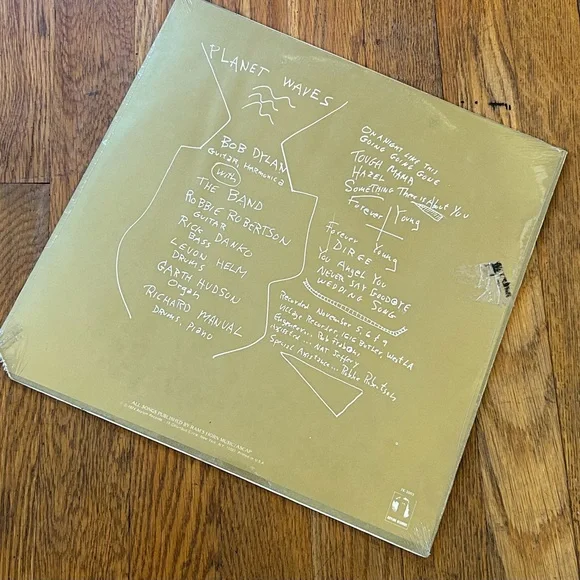 PLANET WAVES
BOB DYLAN
GUITAR, HARMONICA
With
THE BAND
ROBBIE ROBERTSON
GUITAR
RICK DANKO
BASS
LEVON HELM
DRUMS
GARTH HUDSON
Organ
RICHARD MANUAL
DRUMS, piano
ON A NIGHT LIKE THIS
GOING GOING GONE
TOUGH MAMA
HAZEL
SOMETHING There is About You
Forever Young
Forever Young
DIRGE
You Angel You
NEVER SAY GOODBYE
WEDDING SONG
Recorded November 5, 6 & 9
Village Recorder, 1616 Butler, West LA
Engineer... Rob Fraboni
Assisted... NAT Jeffery
Special Assistance... Robbie Robertson
ALL SONGS PUBLISHED BY RAM'S HORN MUSIC/ASCAP